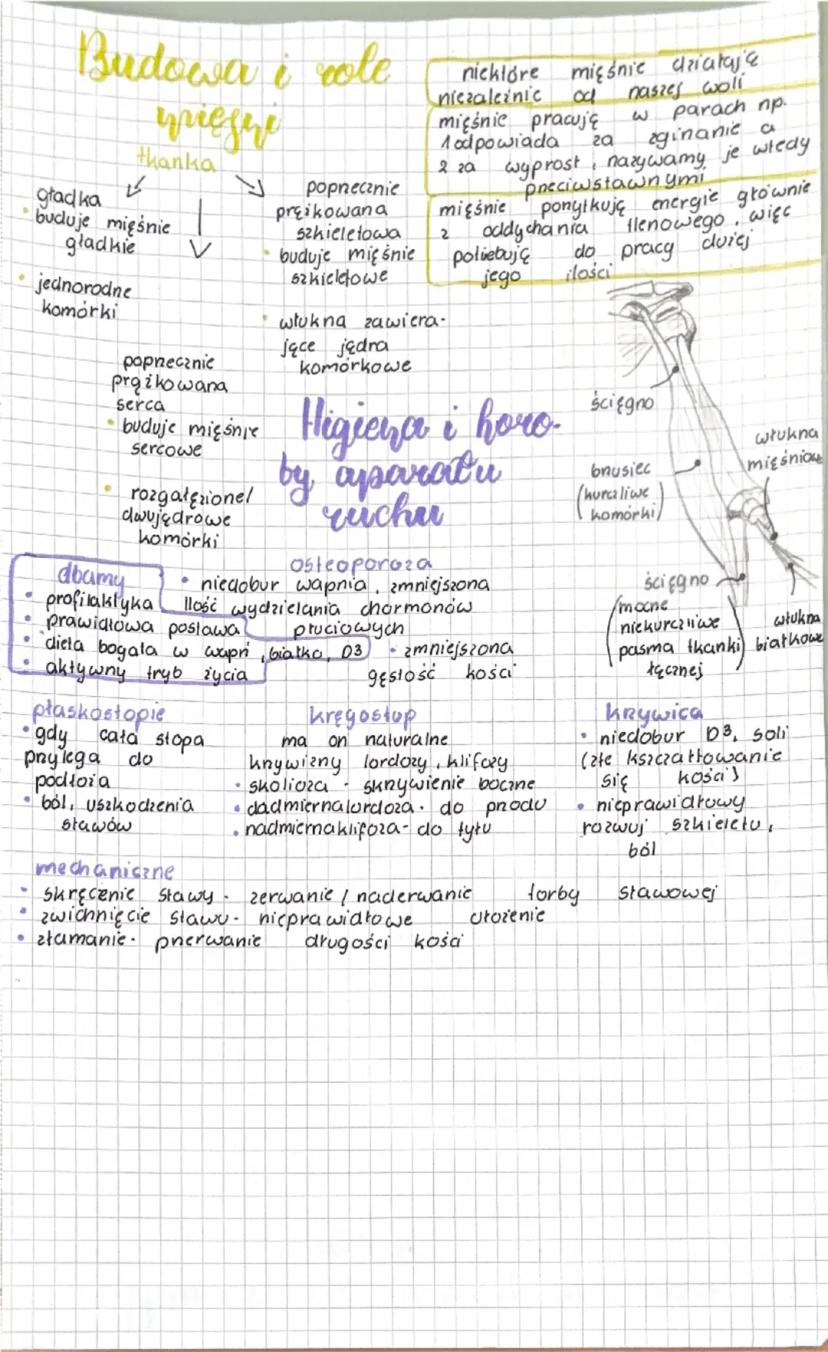 Budowa i role
mięśni
tkanka
niektóre mięśnie działają
niezależnie od naszej woli
mięśnie pracują w parach np.
1 odpowiada za zginanie a
2 za wyprost, nazywamy je wtedy
przeciwstawnymi
mięśnie ponytkują energie głównie
z oddychania tlenowego, więc
potiebują do pracy dużej
jego ilości
gładka
• buduje mięśnie
gładkie
• jednorodne
komórki
popnecznie
prążkowana
szkieletowa
• buduje mięśnie
szkieletowe
• włukna zawiera-
jące jądra
komórkowe
popnecznie
prążkowana
serca
• buduje mięśnie
sercowe
• rozgałęzione/
dwujędrowe
komórki
ścięgno
bnusiec
(kurczliwe
komórki)
włukna
mięśniowe
ścięgno
(mocne
niekurczliwe
pasma tkanki
łącznej)
włukna
białkowe
Higiena i horo-
by aparatu
ruchu
dbamy
• profilaktyka
• prawidłowa postawa
• dieta bogata w wapń, białko, D3
• aktywny tryb życia
osteoporoza
• niedobur wapnia, zmniejszona
ilość wydzielania chormonów
płuciowych
• zmniejszona
gęstość kości
płaskostopie
• gdy cała stopa
pnylega do
podłoża
• ból, uszkodzenia
stawów
kręgosłup
ma on naturalne
knywizny lordozy, kifozy
• skolioza - sknywienie boczne
• dadmierna lordoza - do pnodu
• nadmierna klifoza - do tyłu
knywica
• niedobur D3, soli
(złe kszczałtowanie
się kości)
• nieprawidłowy
rozwuj szkieletu,
ból
mechaniczne
• skręcenie stawy - zerwanie / naderwanie torby stawowej
• zwichnięcie stawu - nieprawidłowe ułożenie
• złamanie - pnerwanie długości kości